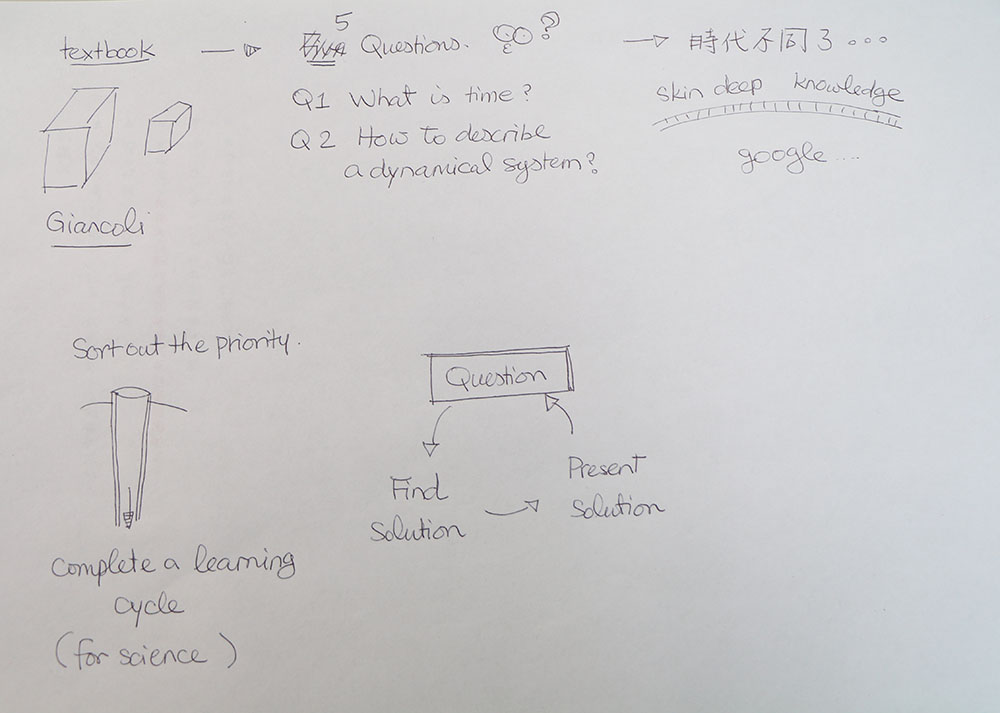 textbook
5
Questions.
?
時代不同了...
skin deep knowledge
google ....
Q1 What is time?
Q2 How to describe
a dynamical system?
Giancoli
Sort out the priority.
complete a learning
cycle
(for science)
Question
Find
Solution
Present
Solution